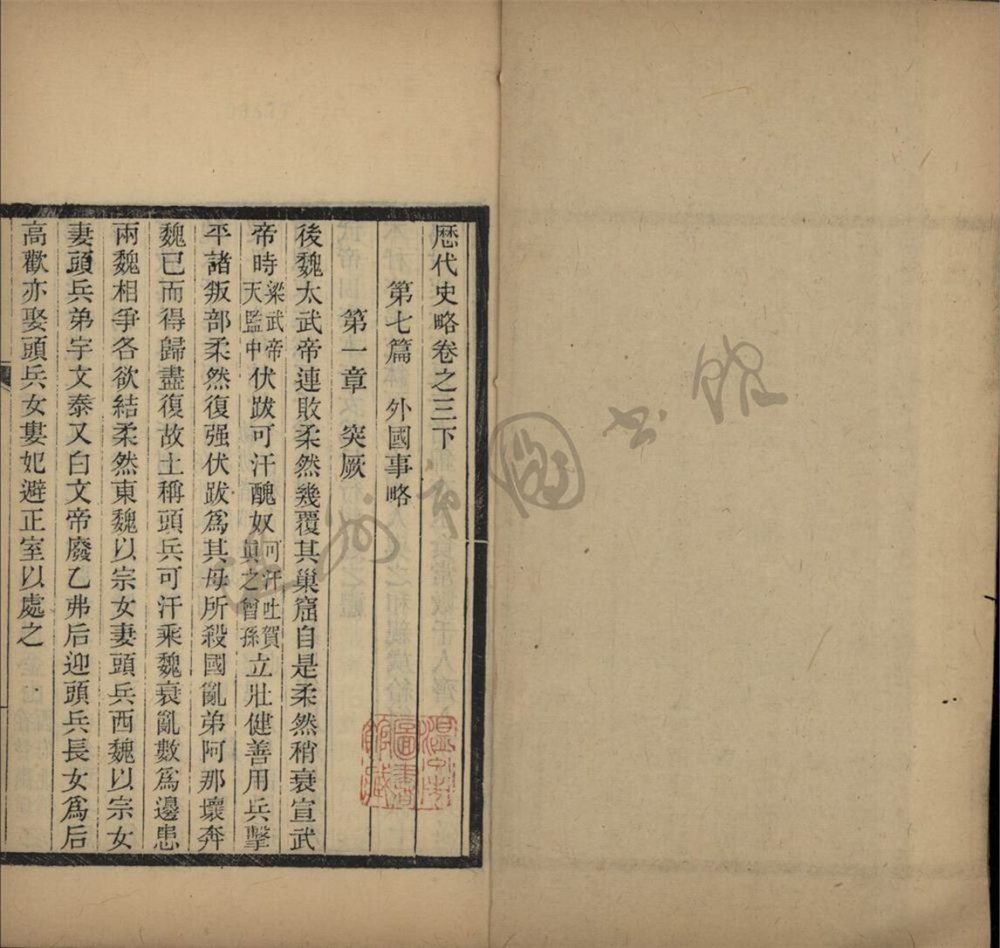 歴代史略卷之三下
第七篇　外國事略
第一章　突厥
後魏太武帝連敗柔然幾覆其巢窟自是柔然稍衰宣武
帝時梁武帝天監中伏跋可汗醜奴可汗吐賀真之曾孫立壯健善用兵擊
平諸叛部柔然復强伏跋爲其母所殺國亂弟阿那壞奔
魏已而得歸盡復故土稱頭兵可汗乘魏衰亂數爲邊患
兩魏相爭各欲結柔然東魏以宗女妻頭兵西魏以宗女
妻頭兵弟宇文泰又白文帝廢乙弗后迎頭兵長女爲后
高歡亦娶頭兵女婁妃避正室以處之
溫州市圖書館藏
溫州市圖書館